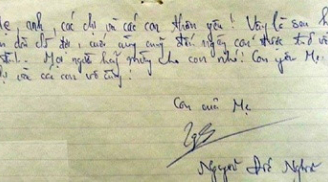 anh, các chị và các con thân yêu! Vậy là sau
cuối cùng cũng đến ngày con được
Mọi người hãy mừng cho con nhé! Con yêu Mẹ
và các con vô cùng!
Con của Mẹ
Nguyễn Đức Nghĩa